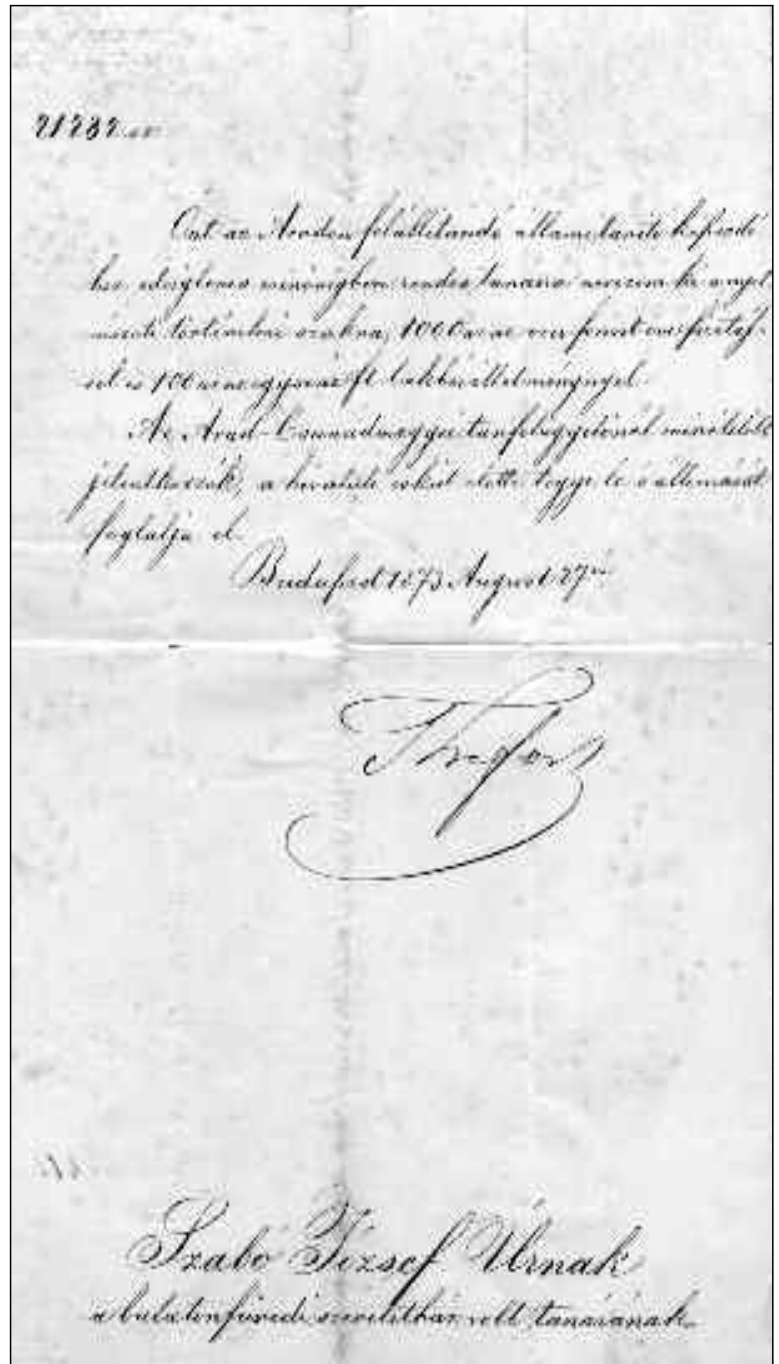 21232
Önt az Aradon felállítandó állami tanító képezdé
hez ideiglenes minőségben rendes tanárrá nevezem ki a nyel
vészeti történelmi szakra, 1000 azaz ezer forint évi fizetés-
sel és 100 azaz egyszáz ft lakbérilletménynyel.
Az Arad-Csanádmegyei tanfelügyelőnél minélelőbb
jelentkezzék, a hivatali esküt előtte tegye le s állomását
foglalja el.
Budapest 1873 August 27én
Trefort
Szabó József Úrnak
a balatonfüredi szeretetház volt tanárának.